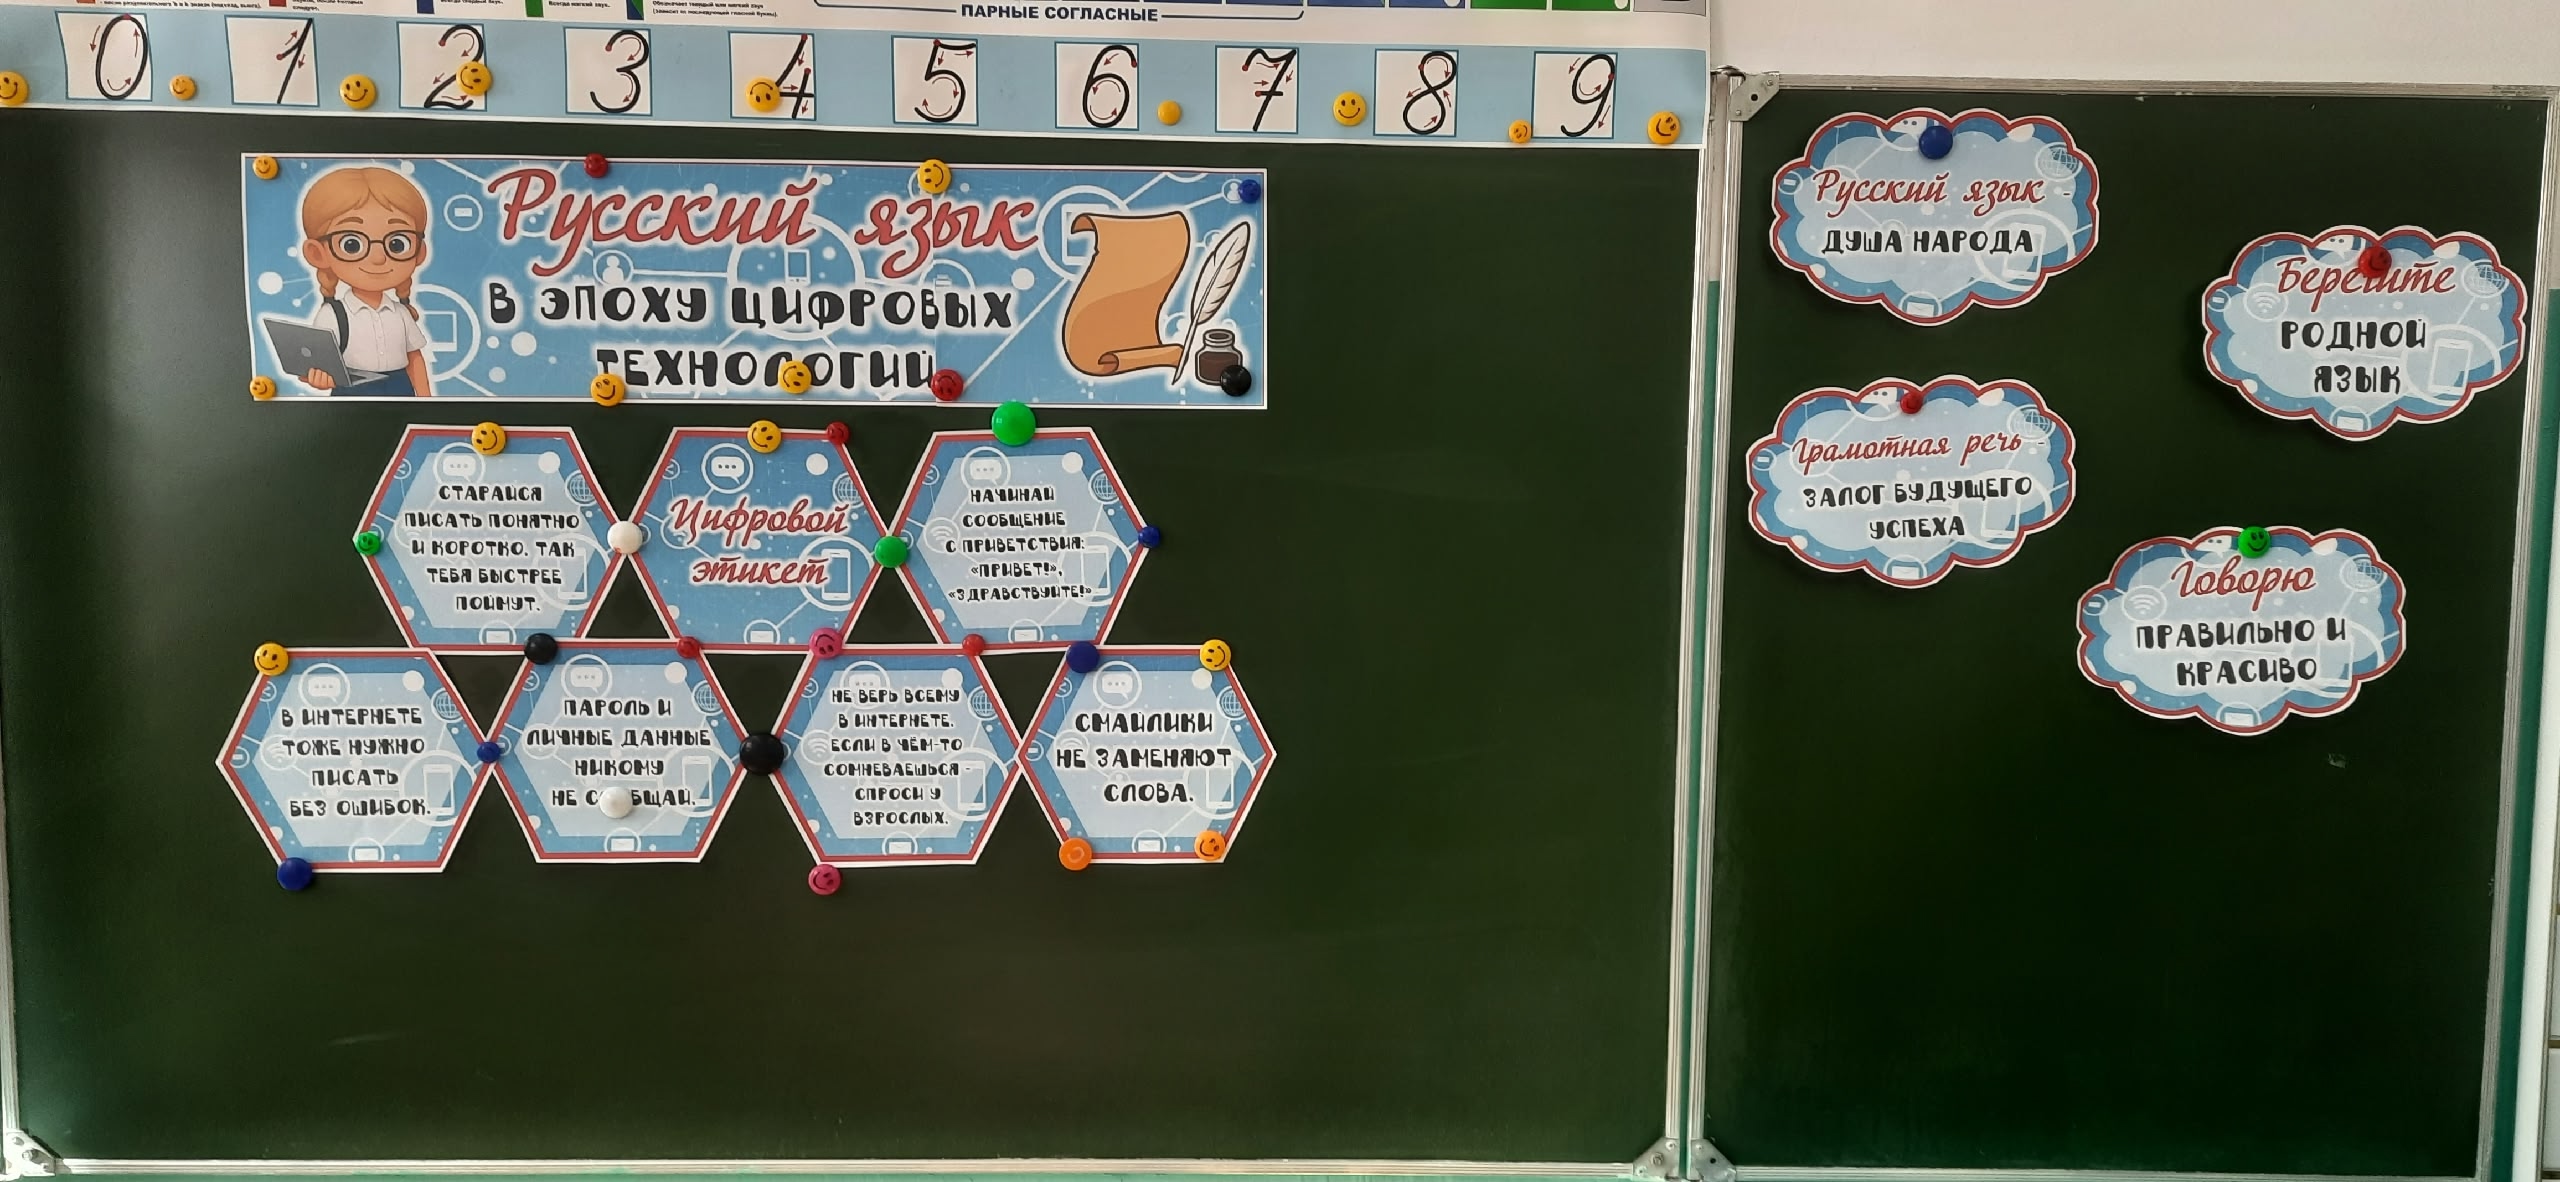 ПАРНЫЕ СОГЛАСНЫЕ
0 1 2 3 4 5 6 7 8 9
Русский язык
В ЭПОХУ ЦИФРОВЫХ
ТЕХНОЛОГИЙ
СТАРАЙСЯ
ПИСАТЬ ПОНЯТНО
И КОРОТКО. ТАК
ТЕБЯ БЫСТРЕЕ
ПОЙМУТ.
Цифровой
этикет
НАЧИНАЙ
СООБЩЕНИЕ
С ПРИВЕТСТВИЯ:
«ПРИВЕТ!»,
«ЗДРАВСТВУЙТЕ!»
В ИНТЕРНЕТЕ
ТОЖЕ НУЖНО
ПИСАТЬ
БЕЗ ОШИБОК.
ПАРОЛЬ И
ЛИЧНЫЕ ДАННЫЕ
НИКОМУ
НЕ СООБЩАЙ.
НЕ ВЕРЬ ВСЕМУ
В ИНТЕРНЕТЕ.
ЕСЛИ В ЧЁМ-ТО
СОМНЕВАЕШЬСЯ -
СПРОСИ У
ВЗРОСЛЫХ.
СМАЙЛИКИ
НЕ ЗАМЕНЯЮТ
СЛОВА.
Русский язык -
ДУША НАРОДА
Берегите
РОДНОЙ
ЯЗЫК
Грамотная речь -
ЗАЛОГ БУДУЩЕГО
УСПЕХА
Говорю
ПРАВИЛЬНО И
КРАСИВО